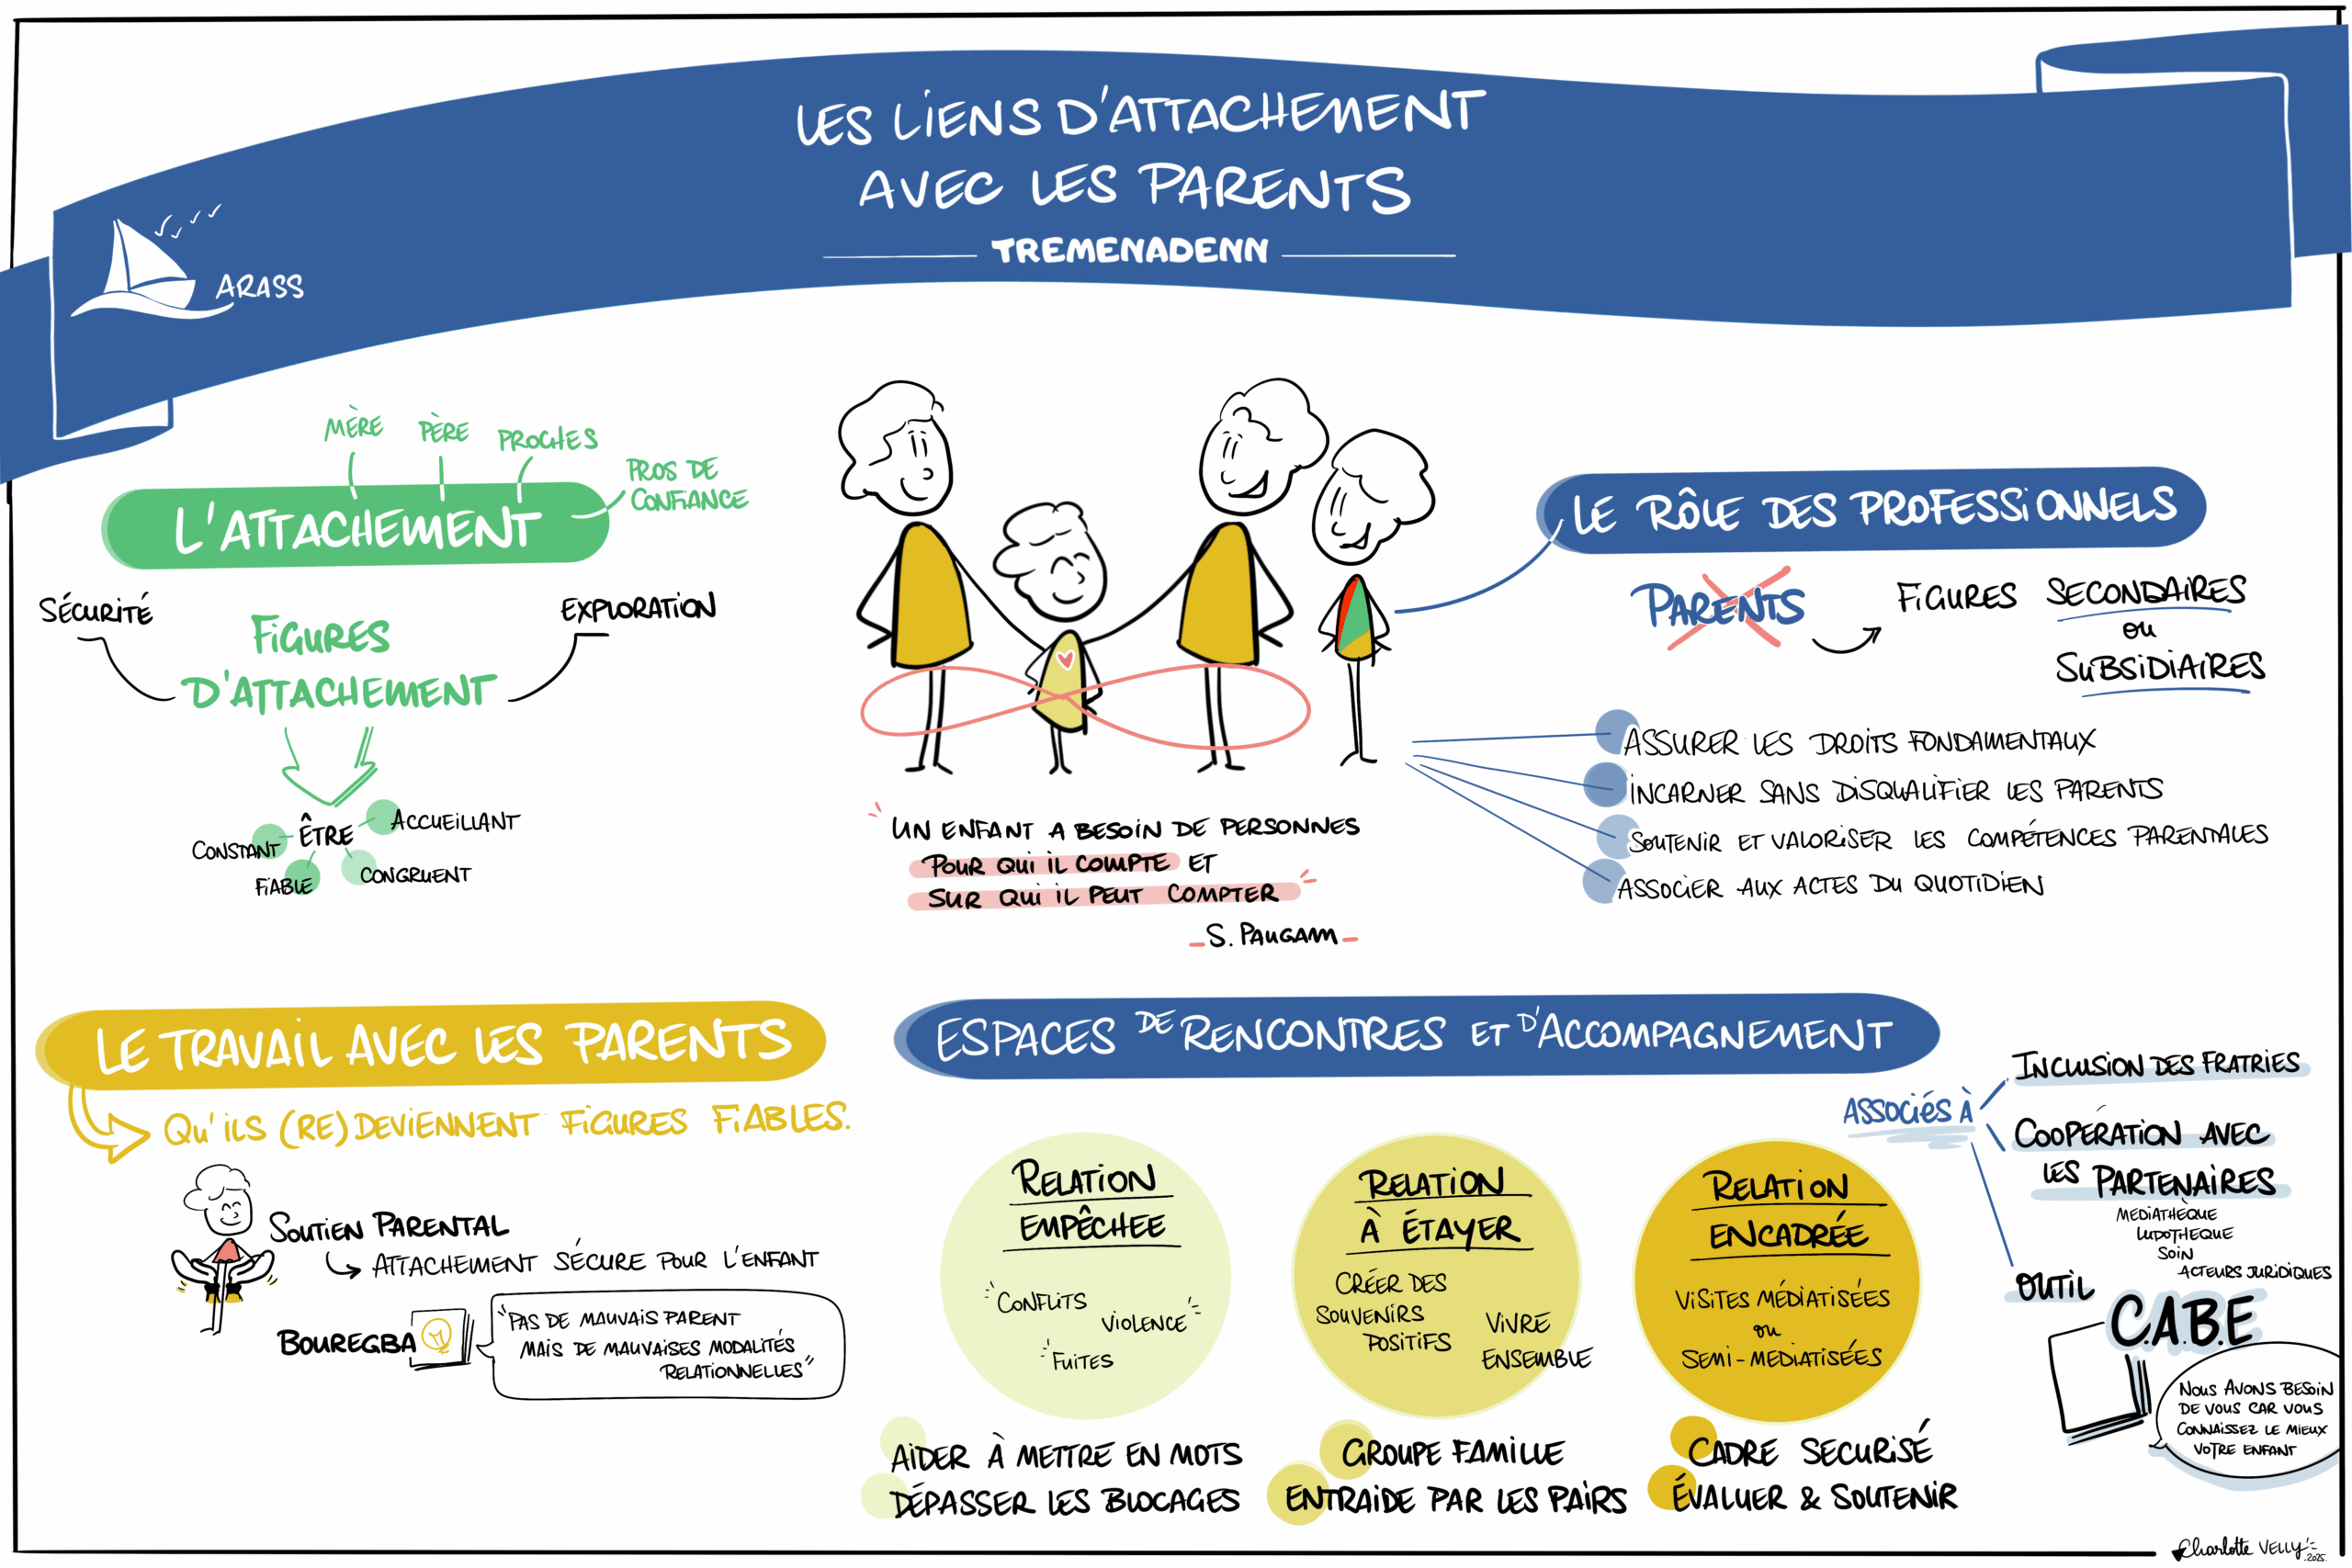 LES LIENS D'ATTACHEMENT
AVEC LES PARENTS
TREMENADENN
ARASS
MÈRE
PÈRE
PROCHES
PROS DE
CONFIANCE
L'ATTACHEMENT
SÉCURITÉ
EXPLORATION
FIGURES
D'ATTACHEMENT
ÊTRE
ACCUEILLANT
CONSTANT
FIABLE
CONGRUENT
"UN ENFANT A BESOIN DE PERSONNES
POUR QUI IL COMPTE ET
SUR QUI IL PEUT COMPTER"
_ S. PAUGAM _
LE RÔLE DES PROFESSIONNELS
PARENTS
FIGURES SECONDAIRES
OU
SUBSIDIAIRES
ASSURER LES DROITS FONDAMENTAUX
INCARNER SANS DISQUALIFIER LES PARENTS
SOUTENIR ET VALORISER LES COMPÉTENCES PARENTALES
ASSOCIER AUX ACTES DU QUOTIDIEN
LE TRAVAIL AVEC LES PARENTS
QU'ILS (RE)DEVIENNENT FIGURES FIABLES.
SOUTIEN PARENTAL
ATTACHEMENT SÉCURE POUR L'ENFANT
BOUREGBA
"PAS DE MAUVAIS PARENT
MAIS DE MAUVAISES MODALITÉS
RELATIONNELLES"
ESPACES DE RENCONTRES ET D'ACCOMPAGNEMENT
RELATION
EMPÊCHEE
"CONFLITS
VIOLENCE"
"FUITES
AIDER À METTRE EN MOTS
DÉPASSER LES BLOCAGES
RELATION
À ÉTAYER
CRÉER DES
SOUVENIRS
POSITIFS
VIVRE
ENSEMBLE
GROUPE FAMILLE
ENTRAIDE PAR LES PAIRS
RELATION
ENCADRÉE
VISITES MÉDIATISÉES
OU
SEMI-MEDIATISÉES
CADRE SECURISÉ
ÉVALUER & SOUTENIR
ASSOCIÉS À
INCLUSION DES FRATRIES
COOPÉRATION AVEC
LES PARTENAIRES
MEDIATHÈQUE
LUDOTHEQUE
SOIN
ACTEURS JURIDIQUES
OUTIL
C.A.B.E
NOUS AVONS BESOIN
DE VOUS CAR VOUS
CONNAISSEZ LE MIEUX
VOTRE ENFANT
Charlotte VELLY
2025